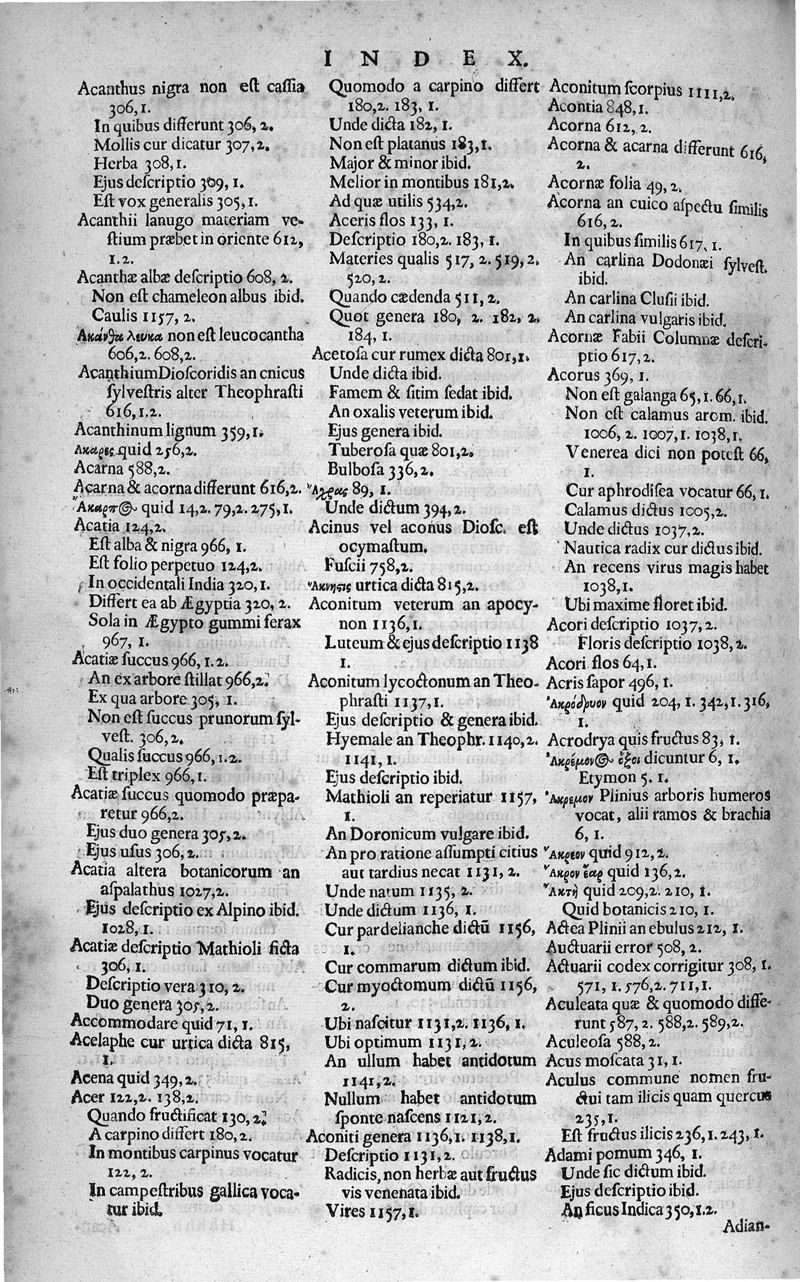 INDEX.
Acanthus nigra non eſt caſſia
306,1.
In quibus differunt 306, 2.
Mollis cur dicatur 307,2.
Herba 308,1.
Ejus deſcriptio 309, 1.
Eſt vox generalis 305,1.
Acanthii lanugo materiam ve-
ſtium præbet in oriente 612,
1.2.
Acanthæ albæ deſcriptio 608, 2.
Non eſt chameleon albus ibid.
Caulis 1157, 2.
Ακάνθα λευκα non eſt leucocantha
606,2. 608,2.
Acanthium Dioſcoridis an cnicus
ſylveſtris alter Theophraſti
616,1.2.
Acanthinum lignum 359,1.
Ακαρες quid 256,2.
Acarna 588,2.
Acarna & acorna differunt 616,2.
Ἀκαρπ@ quid 14,2. 79,2. 275,1.
Acatia 124,2.
Eſt alba & nigra 966, 1.
Eſt folio perpetuo 124,2.
In occidentali India 320,1.
Differt ea ab Ægyptia 320, 2.
Sola in Ægypto gummi ferax
967, 1.
Acatiæ ſuccus 966,1.2.
An ex arbore ſtillat 966,2.
Ex qua arbore 305, 1.
Non eſt ſuccus prunorum ſyl-
veſt. 306,2.
Qualis ſuccus 966,1.2.
Eſt triplex 966,1.
Acatiæ ſuccus quomodo præpa-
retur 966,2.
Ejus duo genera 305,2.
Ejus uſus 306,2.
Acatia altera botanicorum an
aſpalathus 1027,2.
Ejus deſcriptio ex Alpino ibid.
1028,1.
Acatiæ deſcriptio Mathioli ficta
306,1.
Deſcriptio vera 310, 2.
Duo genera 305,2.
Accommodare quid 71, 1.
Acelaphe cur urtica dicta 815,
1.
Acena quid 349,2.
Acer 122,2. 138,2.
Quando fructificat 130,2.
A carpino differt 180,2.
In montibus carpinus vocatur
122, 2.
In campeſtribus gallica voca-
tur ibid.
Quomodo a carpino differt
180,2. 183, 1.
Unde dicta 182, 1.
Non eſt platanus 183,1.
Major & minor ibid.
Melior in montibus 181,2.
Ad quæ utilis 534,2.
Aceris flos 133, 1.
Deſcriptio 180,2. 183, 1.
Materies qualis 517, 2. 519, 2.
520, 2.
Quando cædenda 511, 2.
Quot genera 180, 2. 182, 2.
184, 1.
Acetoſa cur rumex dicta 801,1.
Unde dicta ibid.
Famem & ſitim ſedat ibid.
An oxalis veterum ibid.
Ejus genera ibid.
Tuberoſa quæ 801,2.
Bulboſa 336,2.
Ἀχρας 89, 1.
Unde dictum 394,2.
Acinus vel aconus Dioſc. eſt
ocymaſtum.
Fuſcii 758,2.
Ἀκνησις urtica dicta 815,2.
Aconitum veterum an apocy-
non 1136,1.
Luteum & ejus deſcriptio 1138
1.
Aconitum lycoctonum an Theo-
phraſti 1137,1.
Ejus deſcriptio & genera ibid.
Hyemale an Theophr. 1140,2.
1141, 1.
Ejus deſcriptio ibid.
Mathioli an reperiatur 1157,
1.
An Doronicum vulgare ibid.
An pro ratione aſſumpti citius
aut tardius necat 1131, 2.
Unde natum 1135, 2.
Unde dictum 1136, 1.
Cur pardelianche dictū 1156,
1.
Cur commarum dictum ibid.
Cur myoctomum dictū 1156,
2.
Ubi naſcitur 1131,2. 1136, 1.
Ubi optimum 1131,2.
An ullum habet antidotum
1141,2.
Nullum habet antidotum
ſponte naſcens 1121,2.
Aconiti genera 1136,1. 1138,1.
Deſcriptio 1131,2.
Radicis, non herbæ aut fructus
vis venenata ibid.
Vires 1157,1.
Aconitum ſcorpius 1111,2.
Acontia 848,1.
Acorna 612, 2.
Acorna & acarna differunt 616,
2.
Acornæ folia 49, 2.
Acorna an cuico aſpectu ſimilis
616, 2.
In quibus ſimilis 617, 1.
An carlina Dodonæi ſylveſt.
ibid.
An carlina Cluſii ibid.
An carlina vulgaris ibid.
Acornæ Fabii Columnæ deſcri-
ptio 617,2.
Acorus 369, 1.
Non eſt galanga 65,1. 66,1.
Non eſt calamus arom. ibid.
1006, 2. 1007,1. 1038,1.
Venerea dici non poteſt 66,
1.
Cur aphrodiſea vocatur 66, 1.
Calamus dictus 1005,2.
Unde dictus 1037,2.
Nautica radix cur dictus ibid.
An recens virus magis habet
1038,1.
Ubi maxime floret ibid.
Acori deſcriptio 1037, 2.
Floris deſcriptio 1038,2.
Acori flos 64,1.
Acris ſapor 496, 1.
Ἀκρόδρυον quid 204, 1. 342,1. 316,
1.
Acrodrya quis fructus 83, 1.
Ἀκρέμον@ ὄξοι dicuntur 6, 1.
Etymon 5. 1.
Ἀκρεμον Plinius arboris humeros
vocat, alii ramos & brachia
6, 1.
Ἄκρεον quid 912, 2.
Ἄκρον ἔαρ quid 136,2.
Ἀκτὴ quid 209,2. 210, 1.
Quid botanicis 210, 1.
Actea Plinii an ebulus 212, 1.
Auctuarii error 508, 2.
Actuarii codex corrigitur 308, 1.
571, 1. 576,2. 711,1.
Aculeata quæ & quomodo diffe-
runt 587, 2. 588,2. 589,2.
Aculeoſa 588, 2.
Acus moſcata 31, 1.
Aculus commune nomen fru-
ctui tam ilicis quam quercus
235,1.
Eſt fructus ilicis 236,1. 243, 1.
Adami pomum 346, 1.
Unde ſic dictum ibid.
Ejus deſcriptio ibid.
An ficus Indica 350,1.2.
Adian-